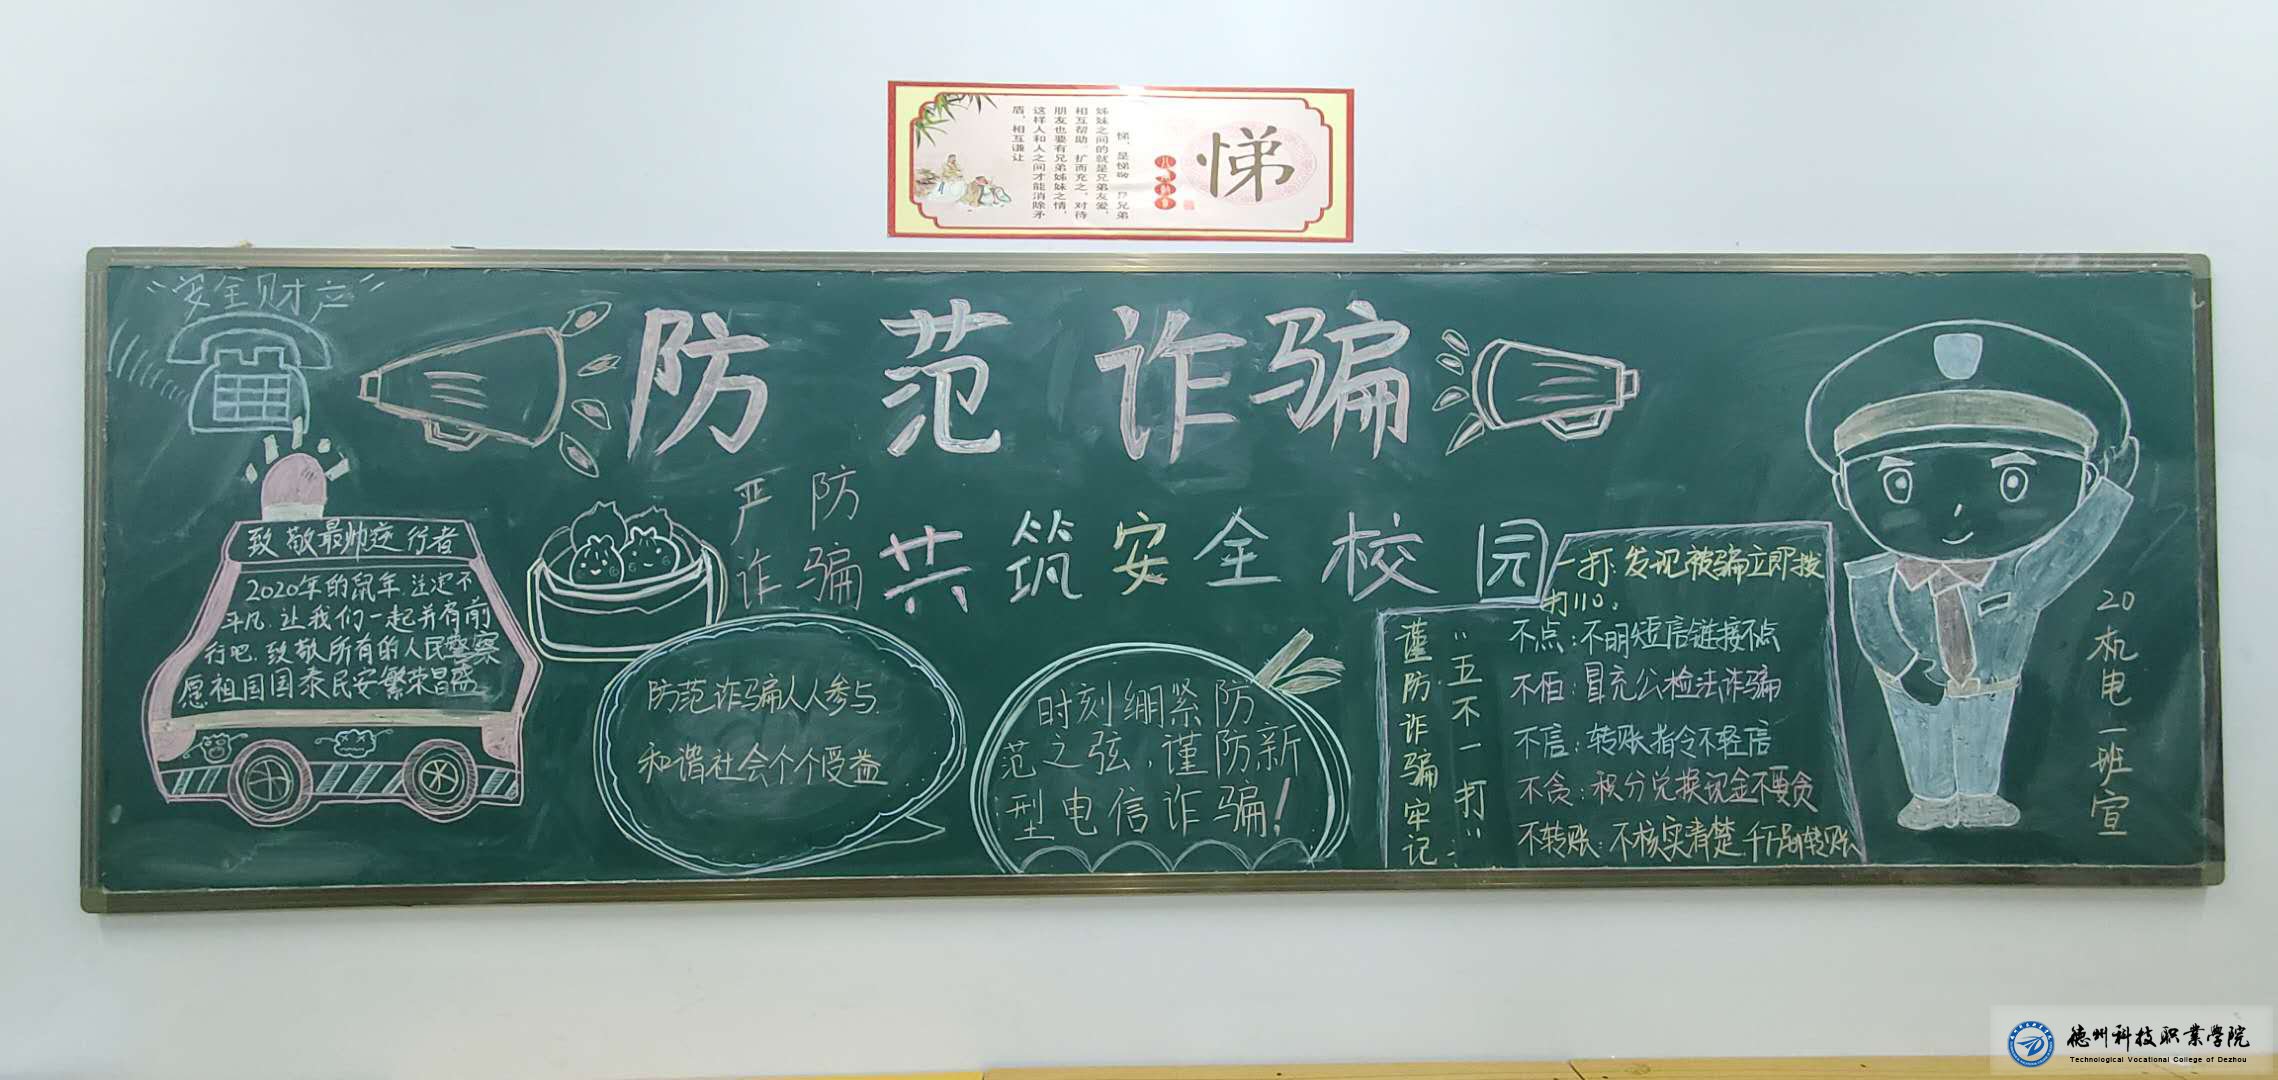 悌
悌，是悌敬，指兄弟
姊妹之间的就是兄弟友爱，
相互帮助。扩而充之，对待
朋友也要有兄弟姊妹之情，
这样人和人之间才能消除矛
盾，相互谦让
“安全财产”
防范诈骗
严防
诈骗
共筑安全校园
致敬最帅逆行者
2020年的鼠年，注定不
平凡，让我们一起并肩前
行吧，致敬所有的人民警察
愿祖国国泰民安繁荣昌盛
防范诈骗人人参与，
和谐社会个个受益
时刻绷紧防
范之弦，谨防新
型电信诈骗！
谨防诈骗牢记
“五不一打”：
一打：发现被骗立即拨
打110。
不点：不明短信链接不点
不信：冒充公检法诈骗
不信：转账指令不轻信
不贪：积分兑换现金不要贪
不转账：不核实清楚，不转账
20机电一班宣
德州科技职业学院
Technological Vocational College of Dezhou